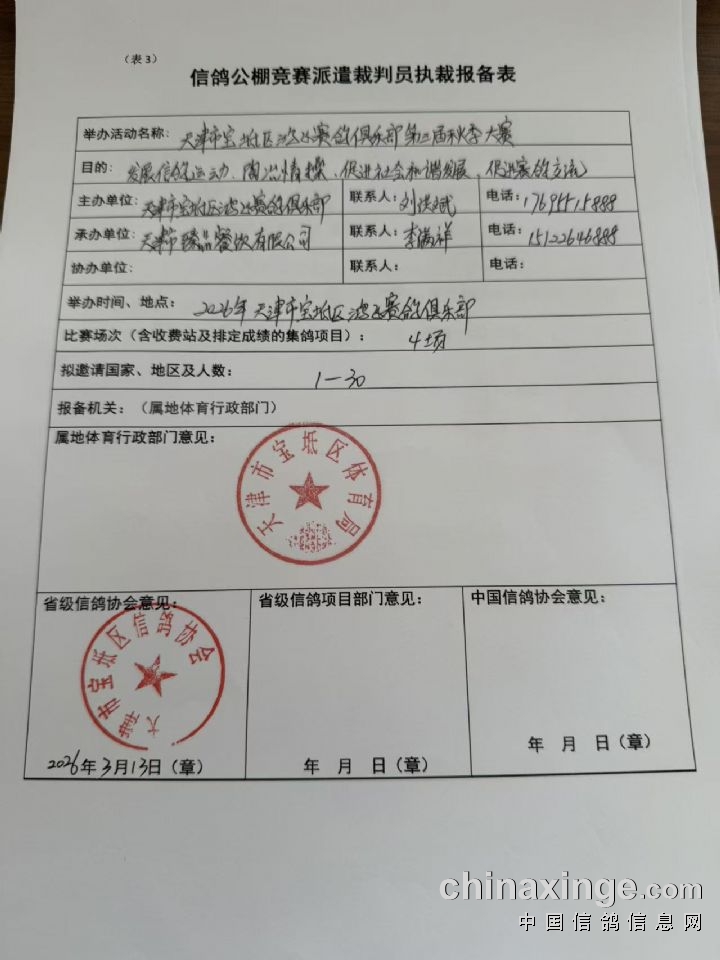 （表3）
信鸽公棚竞赛派遣裁判员执裁报备表
举办活动名称： 天津市宝坻区 赛鸽俱乐部第三届秋季大赛
目的： 发展信鸽运动、陶冶情操、促进社会和谐发展、促进赛鸽交流
主办单位： 天津市宝坻区 赛鸽俱乐部 联系人： 刘 斌 电话：
承办单位： 天津市臻品餐饮有限公司 联系人： 李满祥 电话： 15122646888
协办单位： 联系人： 电话：
举办时间、地点： 2026年 天津市宝坻区 赛鸽俱乐部
比赛场次（含收费站及排定成绩的集鸽项目）： 4场
拟邀请国家、地区及人数： 1—30
报备机关：（属地体育行政部门）
属地体育行政部门意见：
天津市宝坻区体育局
省级信鸽协会意见： 省级信鸽项目部门意见： 中国信鸽协会意见：
天津市宝坻区信鸽协会
2026年3月13日（章） 年 月 日（章） 年 月 日（章）
chinaxinge.com
中国信鸽信息网